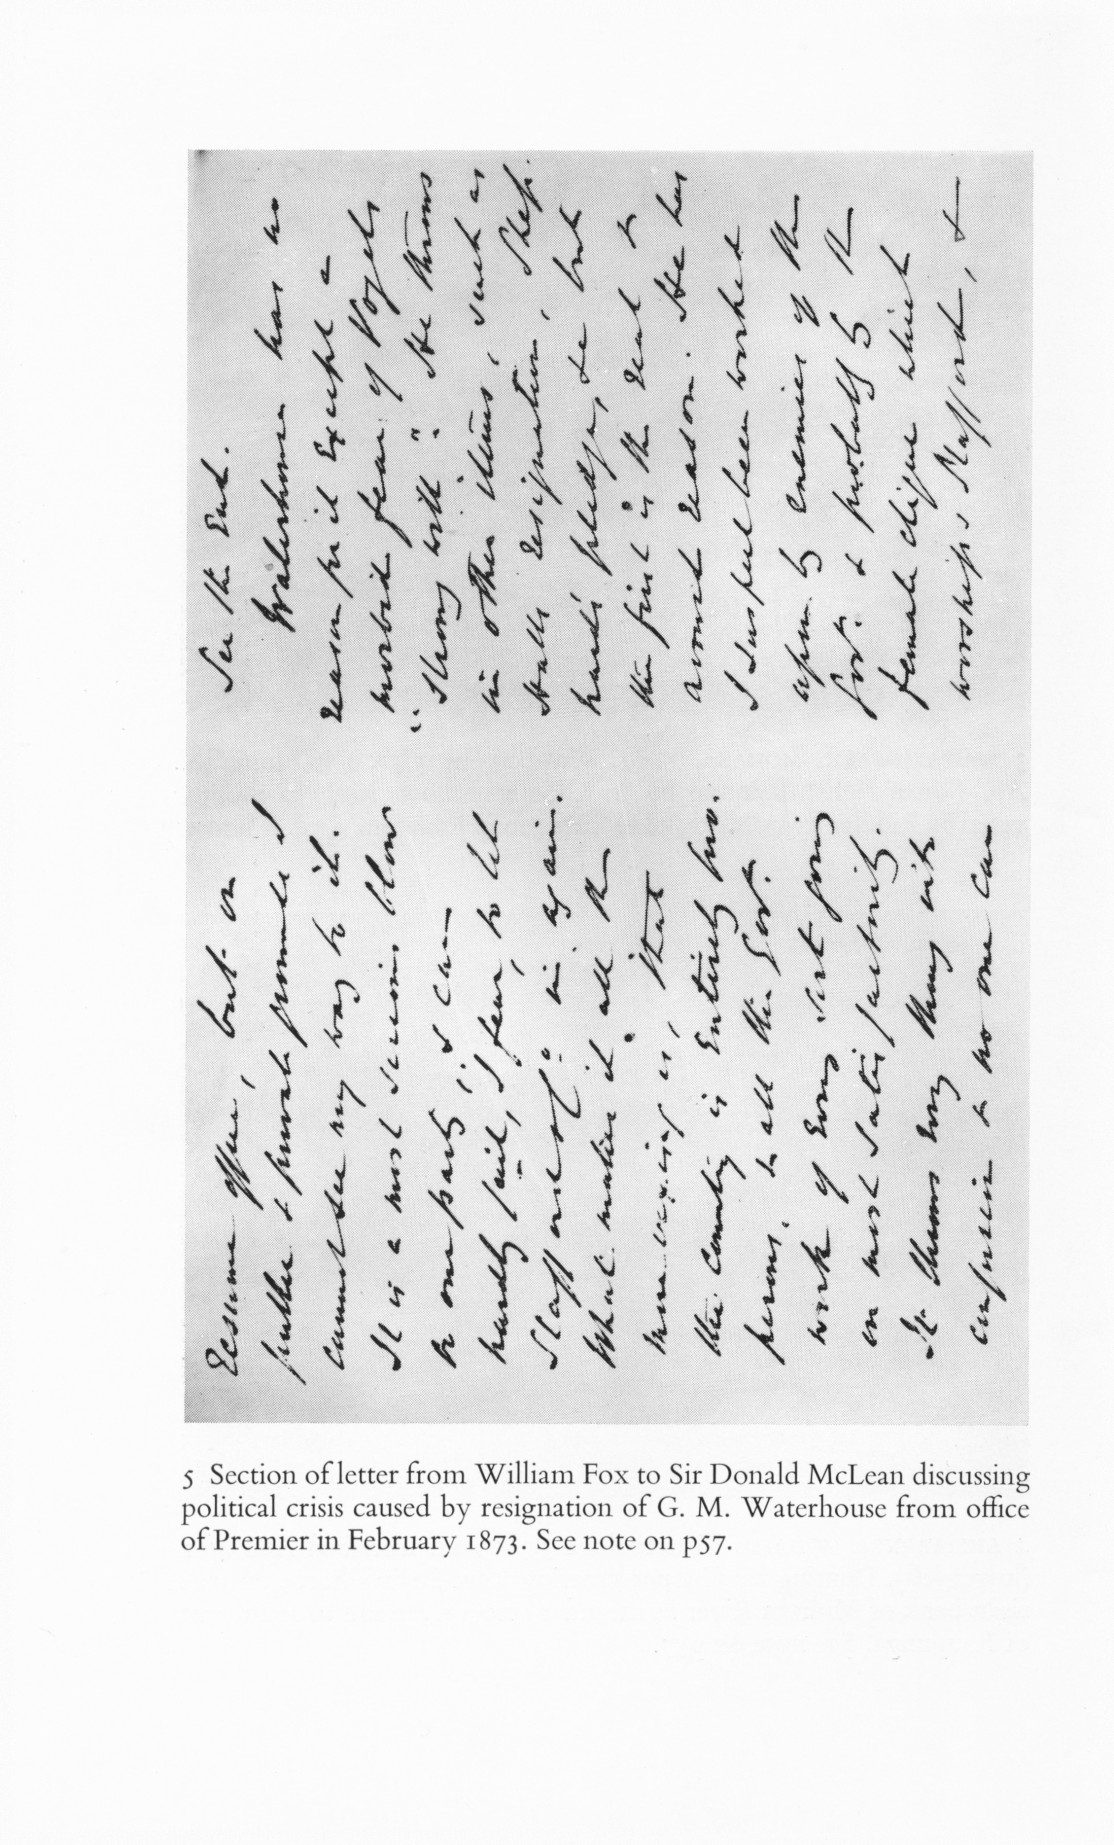 resume office, but on
public & private grounds I
cannot see my way to it.
It is a most serious blow
to our party, & can
hardly fail, I fear, to let
Stafford & Co in again.
What makes it all the
more vexing is, that
the country is entirely pros-
perous, & all the Govt.
work of every sort going
on most satisfactorily.
It throws every thing into
confusion & no one can
see the end.
Waterhouse has no
reason for it except a
morbid fear of Vogel's
"strong will". He throws
in other items, such as
Hall's resignation, Shep-
hard's pledge, &c but
the first is the real &
avowed reason. He has
I suspect been worked
upon by enemies of the
Govt. & probably by the
female clique which
worships Stafford, &
5 Section of letter from William Fox to Sir Donald McLean discussing
political crisis caused by resignation of G. M. Waterhouse from office
of Premier in February 1873. See note on p57.